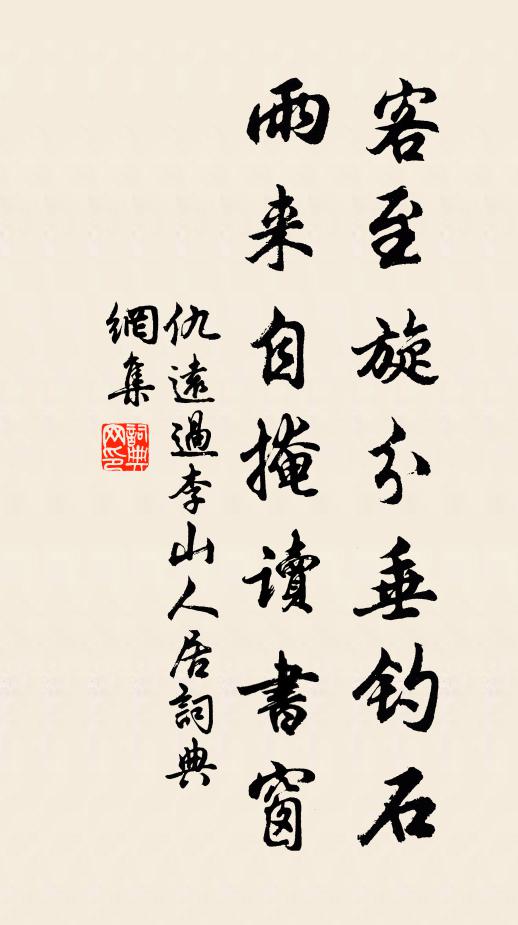 客至旋分垂釣石
雨来自掩讀書窗
仇遠過李山人居詞典
網集
詞典
网印